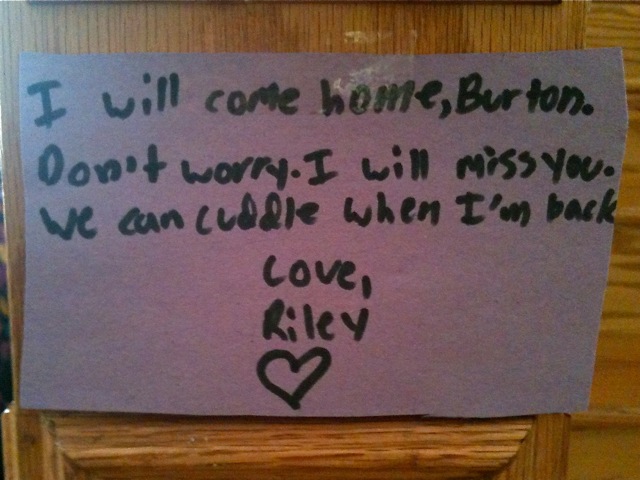 I will come home, Burton.
Don't worry. I will miss you.
We can cuddle when I'm back
Love,
Riley